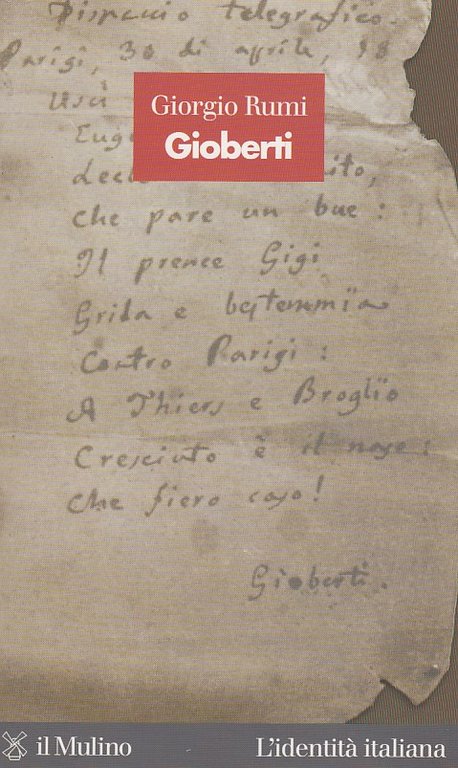 Dispaccio telegrafico.
Parigi, 30 di aprile, 18
Giorgio Rumi
Gioberti
Uscì
Euge
che pare un bue:
Il prence Gigi
Grida e bestemmïa
Contro Parigi:
A Thiers e Broglio
Cresciuto è il naso:
Che fiero caso!
Gioberti.
il Mulino
L'identità italiana